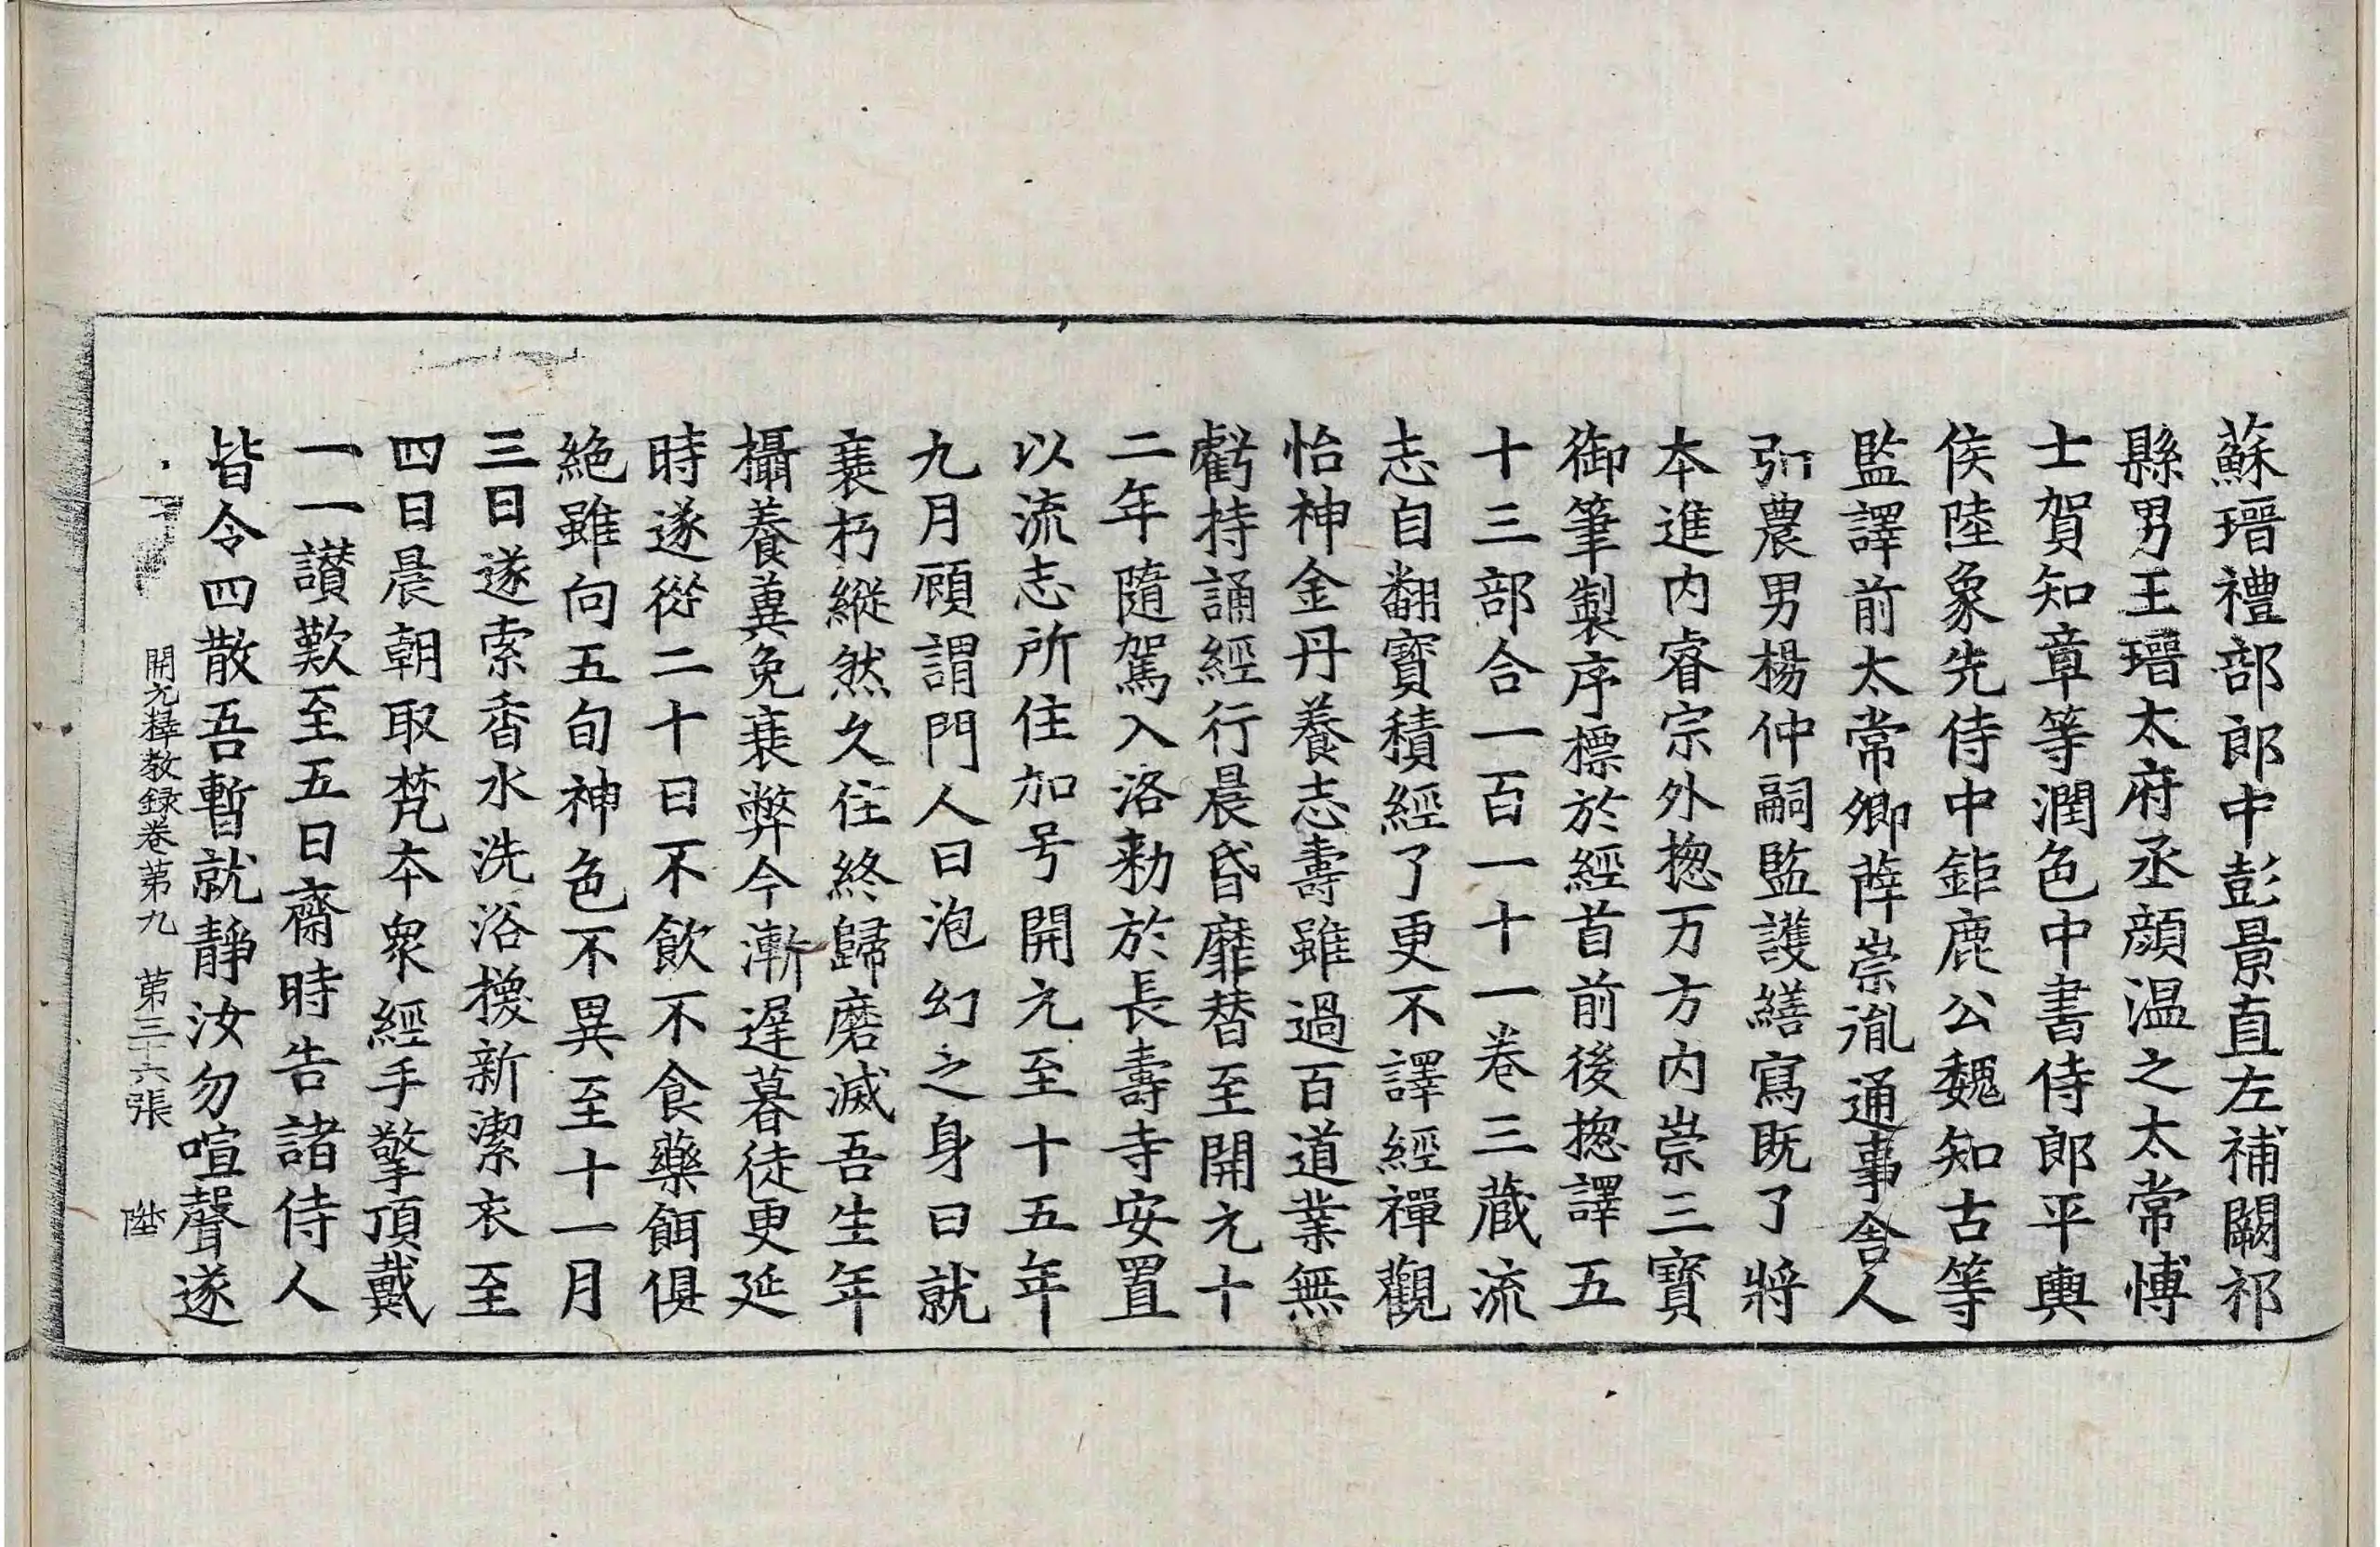 蘇瑨禮部郎中彭景直左補闕祁
縣男王瑨太府丞顏温之太常博
士賀知章等潤色中書侍郎平輿
侯陸象先侍中鉅鹿公魏知古等
監譯前太常卿薛崇胤通事舍人
弘農男楊仲嗣監護繕寫既了將
本進内睿宗外揔万方内崇三寳
御筆製序標於經首前後揔譯五
十三部合一百一十一卷三藏流
志自翻寳積經了更不譯經禪觀
怡神金丹養志壽雖過百道業無
虧持誦經行晨昏靡替至開元十
二年隨駕入洛勑於長壽寺安置
以流志所住加号開元至十五年
九月顧謂門人曰泡幻之身日就
衰朽縱然久住終歸磨滅吾生年
攝養蕪免衰弊今漸遲暮徒更延
時遂從二十日不飲不食藥餌俱
絶雖向五旬神色不異至十一月
三日遂索香水洗浴換新潔衣至
四日晨朝取梵本衆經手擎頂戴
一一讃歎至五日齋時告諸侍人
皆令四散吾暫就靜汝勿喧聲遂
開元釋教録卷第九　第三十六張　陞